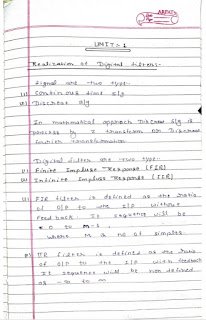 UNIT: 1
Realization of Digital filters:-
Signal are two type:-
(1) continuous time sig
(2) Discreet sig
In mathematical approach Discreet sig is
by Z transform or Discreet
fourier transformation
Digital filter are two type-
(1) Finite Impluse Response (FIR)
(2) Infinite Impluse Response (IIR)
(1) FIR filter is defined as the ratio
of O/P to the I/P without
feed back. It sequence will be
0 to M-1,
where M is no of simples.
(2) IIR filter is defined as the ratio
of O/P to the I/P with feedback
It sequence will be non defined
as -∞ to ∞